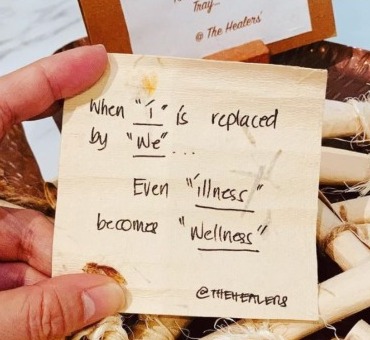 Tray—
@ The Healers'
When "i" is replaced
by "We"...
Even "illness"
becomes "Wellness"
@THEHEALERS